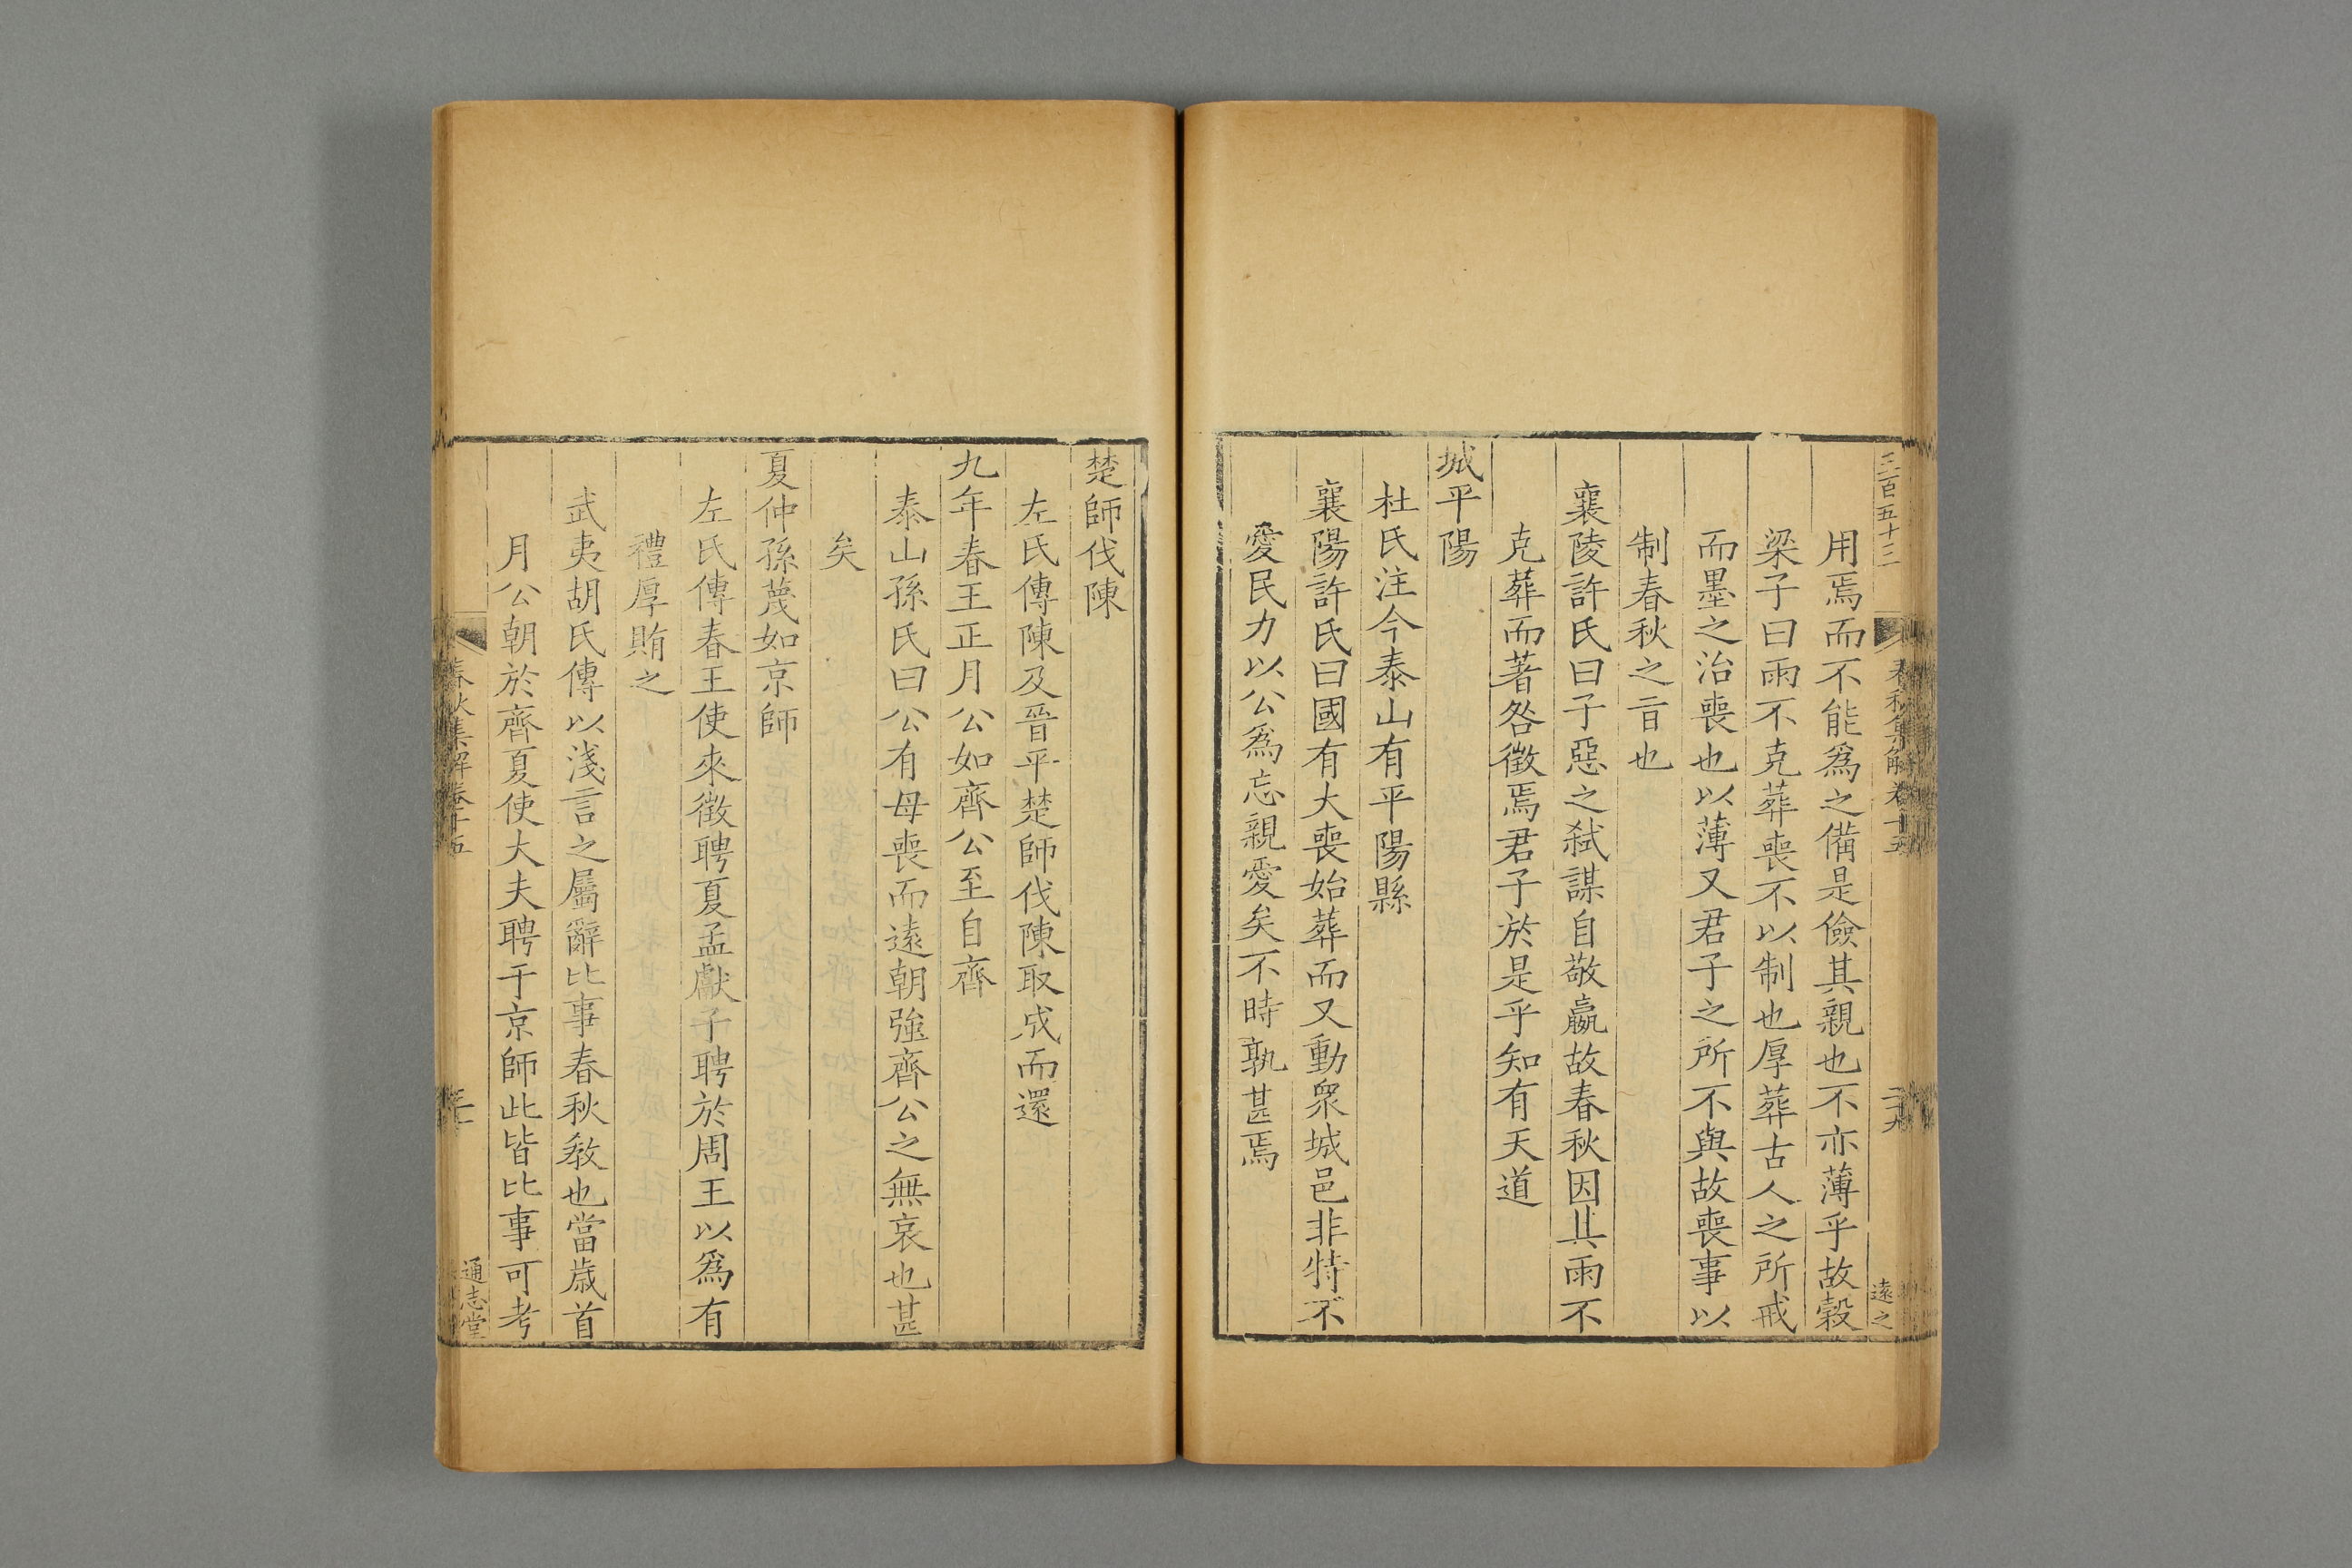 三百五十三
春秋集解卷十五
二十九
遠之
用焉而不能爲之備是儉其親也不亦薄乎故穀
梁子曰雨不克葬喪不以制也厚葬古人之所戒
而墨之治喪也以薄又君子之所不與故喪事以
制春秋之旨也
襄陵許氏曰子惡之弑謀自敬嬴故春秋因其雨不
克葬而著咎徵焉君子於是乎知有天道
城平陽
杜氏注今泰山有平陽縣
襄陽許氏曰國有大喪始葬而又動衆城邑非特不
愛民力以公爲忘親愛矣不時孰甚焉
楚師伐陳
左氏傳陳及晉平楚師伐陳取成而還
九年春王正月公如齊公至自齊
泰山孫氏曰公有母喪而遠朝強齊公之無哀也甚
矣
夏仲孫蔑如京師
左氏傳春王使來徵聘夏孟獻子聘於周王以爲有
禮厚賄之
武夷胡氏傳以淺言之屬辭比事春秋教也當歲首
月公朝於齊夏使大夫聘于京師此皆比事可考
春秋集解卷十五
通志堂